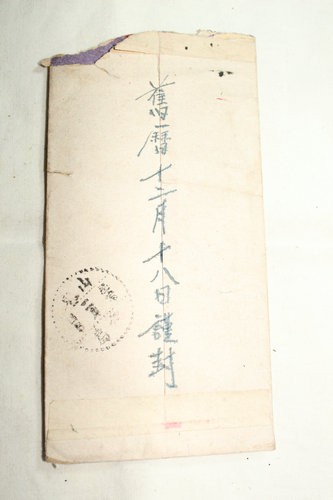 舊曆十二月十八日謹封
山